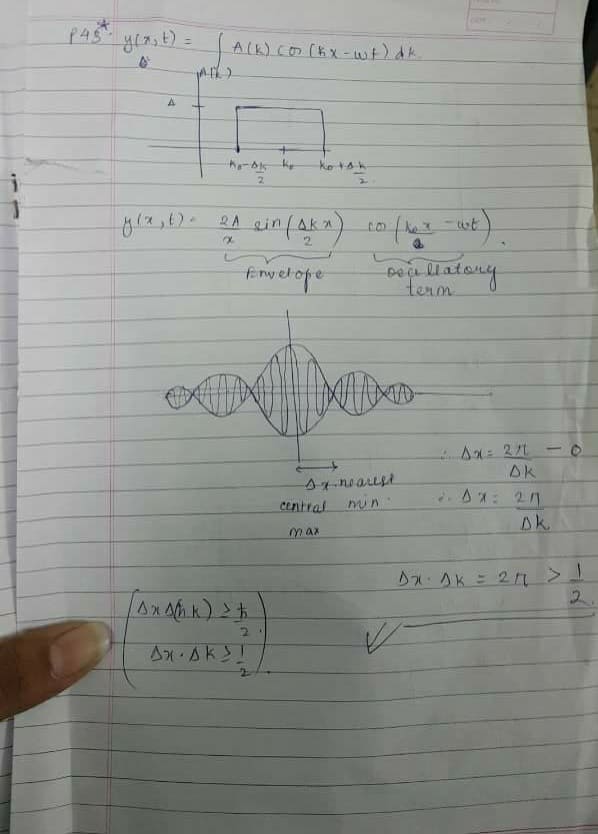 P43* y(x,t) = ∫ A(k) cos (kx - wt) dk.
A(k)
A
k₀ - Δk/2 k₀ k₀ + Δk/2
y(x,t) = 2A/x sin(Δk x/2) cos(k₀x - wt).
Envelope Oscillatory term
∴ Δx = 2π/Δk - 0
Δx nearest
central min.
max
∴ Δx = 2π/Δk
Δx · Δk = 2π > 1/2.
(Δx Δ(ħk) ≥ ħ/2.
Δx · Δk ≥ 1/2.)